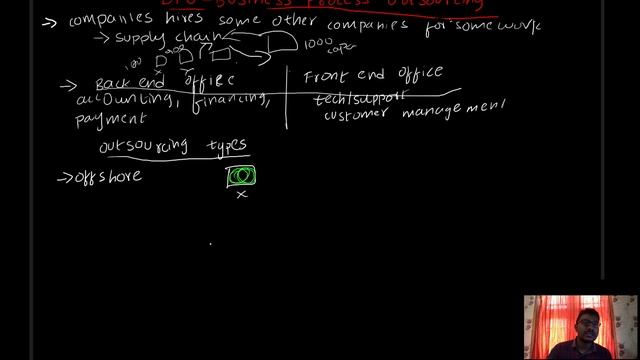 BPO - Business Process Outsourcing
→ companies hires some other companies for some work
→ supply chain
1000
100
→ Back end office
Front end office
accounting, financing,
tech/support
payment
customer management
outsourcing types
→ offshore
x